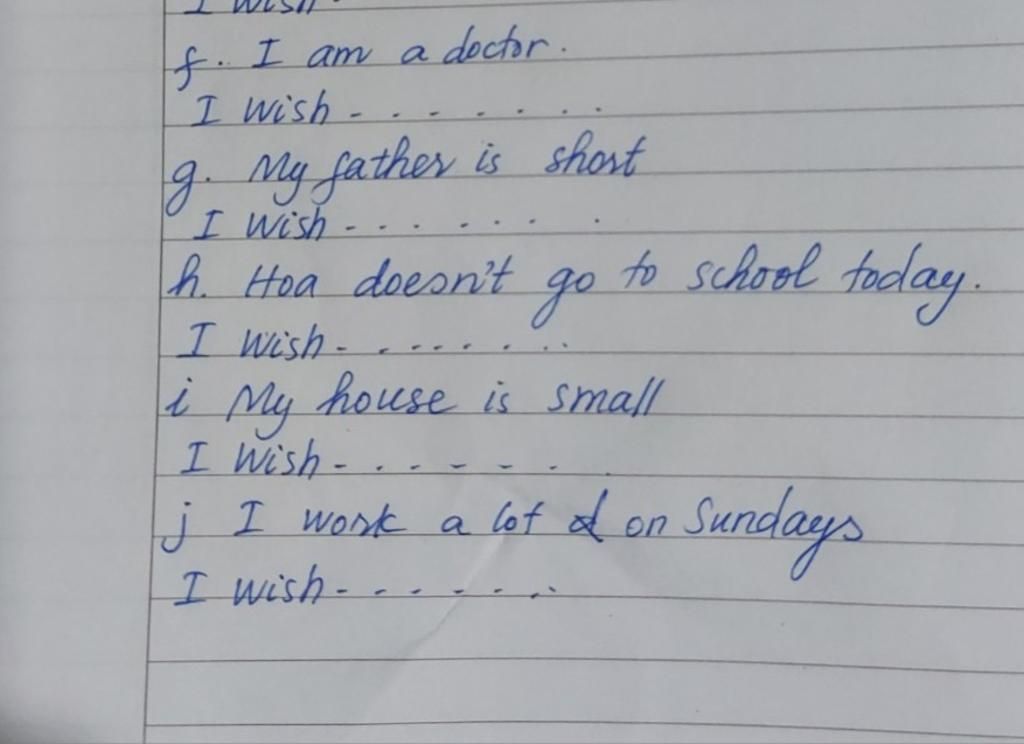 I wish -
f. I am a doctor.
I wish - . . - . . .
g. My father is short
I wish - . . . - . . .
h. Hoa doesn't go to school today.
I wish - . . . . . . .
i My house is small
I wish - . . - - .
j I work a lot on Sundays
I wish - - - - - .